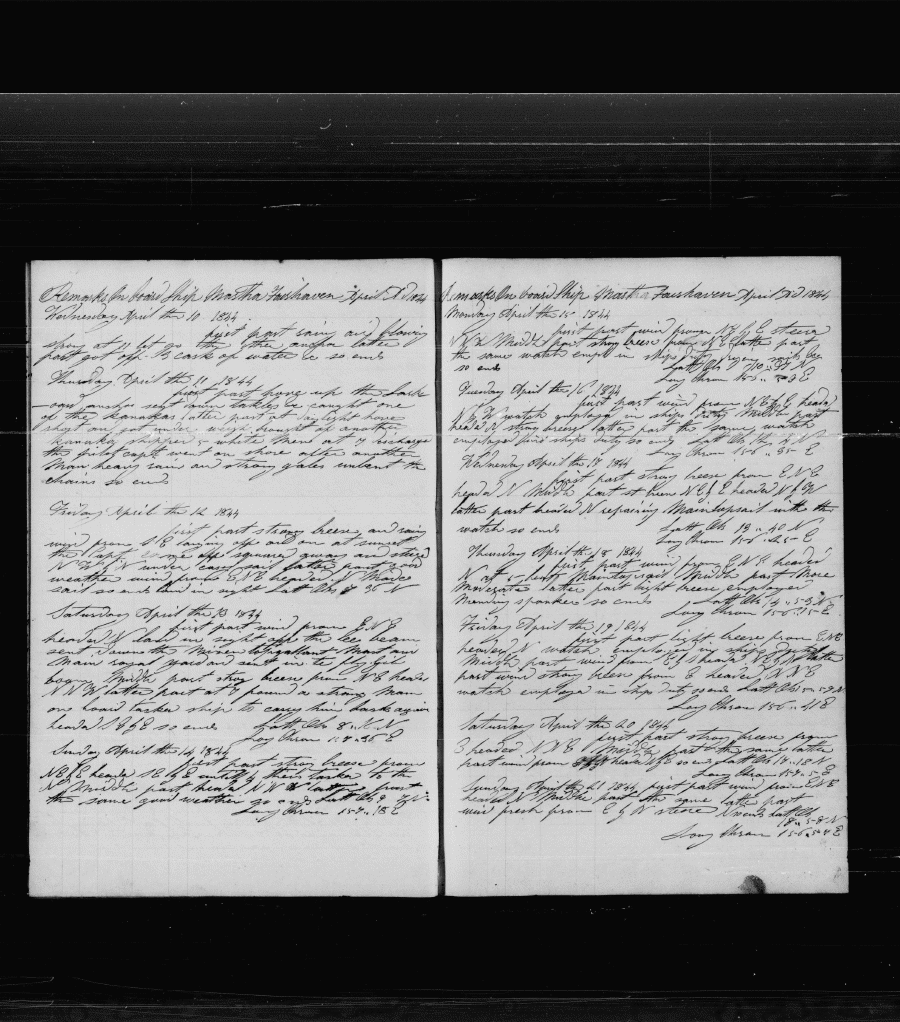 Remarks On board Ship Martha Fairhaven April AD 1844
Wednesday April the 10 1844
first part rain and blowing
sprung at 11 let go the other anchor latter
part got off 13 cask of water &c so ends
Thursday April the 11 1844
first part hove up the lark
-ard anchor sent down takles &c caught one
of the kanakas latter part at daylight hove
short and got under weigh brought of another
kanaka shipper & white men at 7 discharge
the pilot capt went on shore after another
man heavy rain and strong gales unbent the
chains so ends
Friday April the 12 1844
first part strong breeze and rain
wind from S E laying off and on at sunset
the Capt come off square away and steerd
N W by N under easy sail latter part good
weather wind from E N E headed N Made
sail so ends land in sight Latt Obs 7 36 N
Saturday April the 13 1844
first part wind from E N E
headed N land in sight off the lee beam
sent down the Mizen topgallant Mast and
Main royal yard and sent in the fly Gib
boom Middle part strong breeze from N E headed
N N W latter part at 7 found a strong man
on board tacked ship to carry him back again
headed S E by E so ends Latt Obs 8 .. N
Long Chron 157 .. 36 E
Sunday April the 14 1844
first part strong breeze from
N E by E headed S E by E untill then tacked to the
N Middle part headed N N W latter part
the same good weather so ends Latt Obs 9 N
Long Chron 157 .. 18 E
Remarks On board Ship Martha Fairhaven April AD 1844
Monday April the 15 1844
first part wind from N E by E steerd
N Middle part strong breeze from N E latter part
the same watch emp in ships duty
so ends Latt Obs 10 .. N
Long Chron E
Tuesday April the 16 1844
first part wind from N E by E headed
N by W watch employed in ships duty Middle part
headed N strong breeze latter part the same watch
employed in ships duty so ends Latt Obs N
Long Chron 156 .. 35 E
Wednesday April the 17 1844
first part strong breeze from E N E
headed N Middle part st breeze N E by E headed N by W
latter part headed N repairing Maintopsail with the
watch so ends Latt Obs 13 .. 40 N
Long Chron 156 .. 25 E
Thursday April the 18 1844
first part wind from E N E headed
N at 5 bent Maintopsail Middle part More
Moderate latter part light breeze employed
Mending spanker so ends Latt Obs 14 .. 53 N
Long Chron 156 .. 15 E
Friday April the 19 1844
first part light breeze from E N E
headed N watch employed in ships duty
Middle part wind from E by S headed N E by N latter
part wind strong breeze from E headed N N E
watch employed in ships duty so ends Latt Obs 15 .. 59 N
Long Chron 156 .. 41 E
Saturday April the 20 1844
first part strong breeze from
E headed N N E Middle part the same latter
part wind from headed N E so ends Latt Obs 17 .. 18 N
Long Chron 157 .. 5 E
Sunday April the 21 1844 first part wind from E N E
headed N Middle part the same latter part
wind fresh from E by N steerd N ends Latt Obs
18 .. 58 N
Long Chron 156 .. 54 E